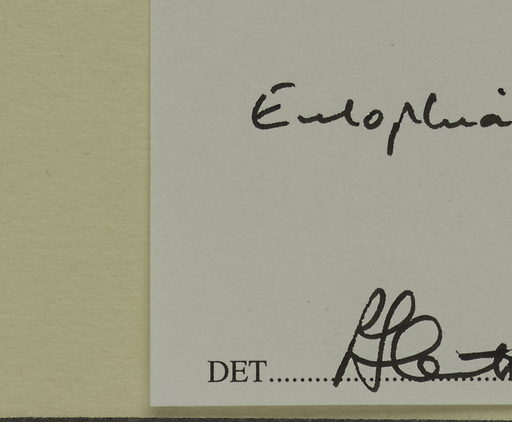 Eulophia
DET